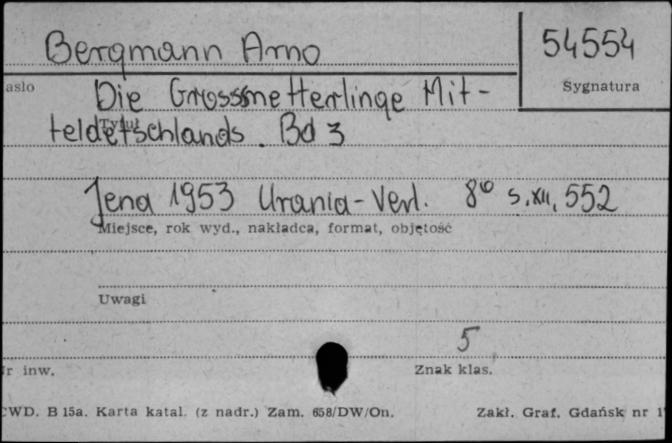 Bergmann Arno
54554
asło
Sygnatura
Die Grossmetterlinge Mit-
Tytuł
teldetschlands. Bd 3
Jena 1953 Urania-Verl. 8° s. XII, 552
Miejsce, rok wyd., nakładca, format, objętość
Uwagi
5
r inw.
Znak klas.
WD. B 15a. Karta katal. (z nadr.) Zam. 658/DW/On.
Zakł. Graf. Gdańsk nr 1